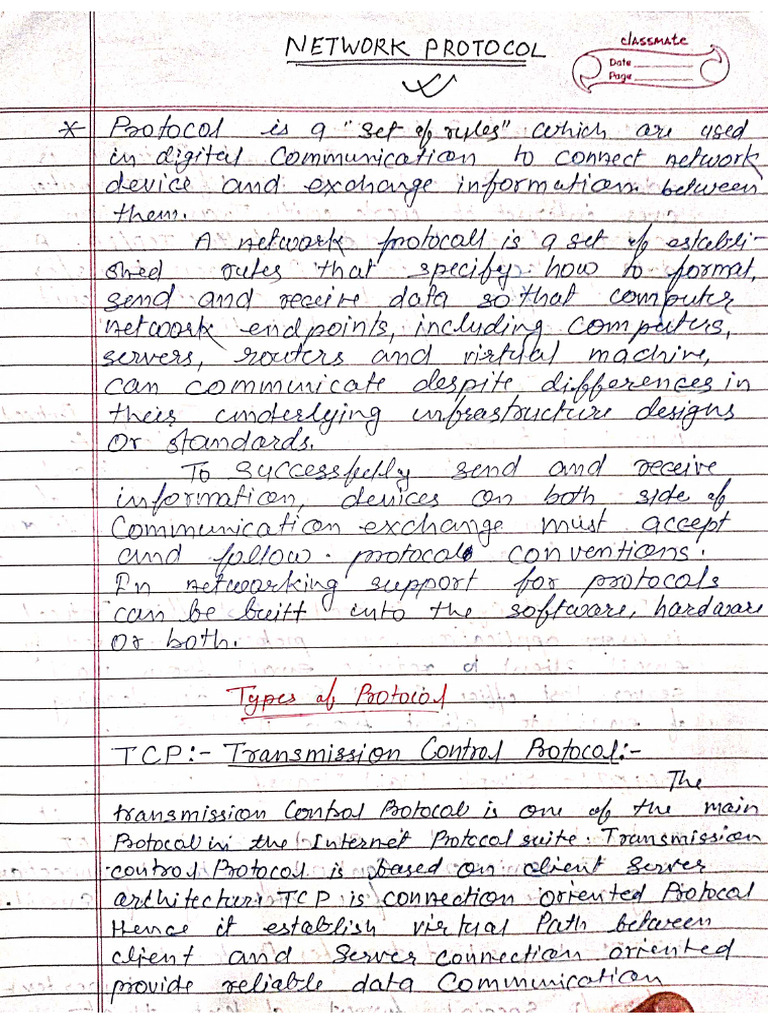 NETWORK PROTOCOL
classmate
Date
Page
* Protocol is a "set of rules" which are used
in digital communication to connect network
device and exchange information between
them.
A network protocall is a set of establi-
shed rules that specify how to format,
send and receive data so that computer
network endpoints, including computers,
servers, routers and virtual machine,
can communicate despite differences in
their underlying infrastructure designs
or standards.
To successfully send and receive
information, devices on both side of
communication exchange must accept
and follow. protocols conventions.
In networking support for protocols
can be built into the software, hardware
or both.
Types of Protocol
TCP:- Transmission Control Protocol:-
The
transmission Control Protocol is one of the main
Protocol in the Internet Protocol suite. Transmission
control Protocol is based on client server
architecture. TCP is connection oriented Protocol
Hence it establish virtual Path between
client and Server connection oriented
provide reliable data Communication